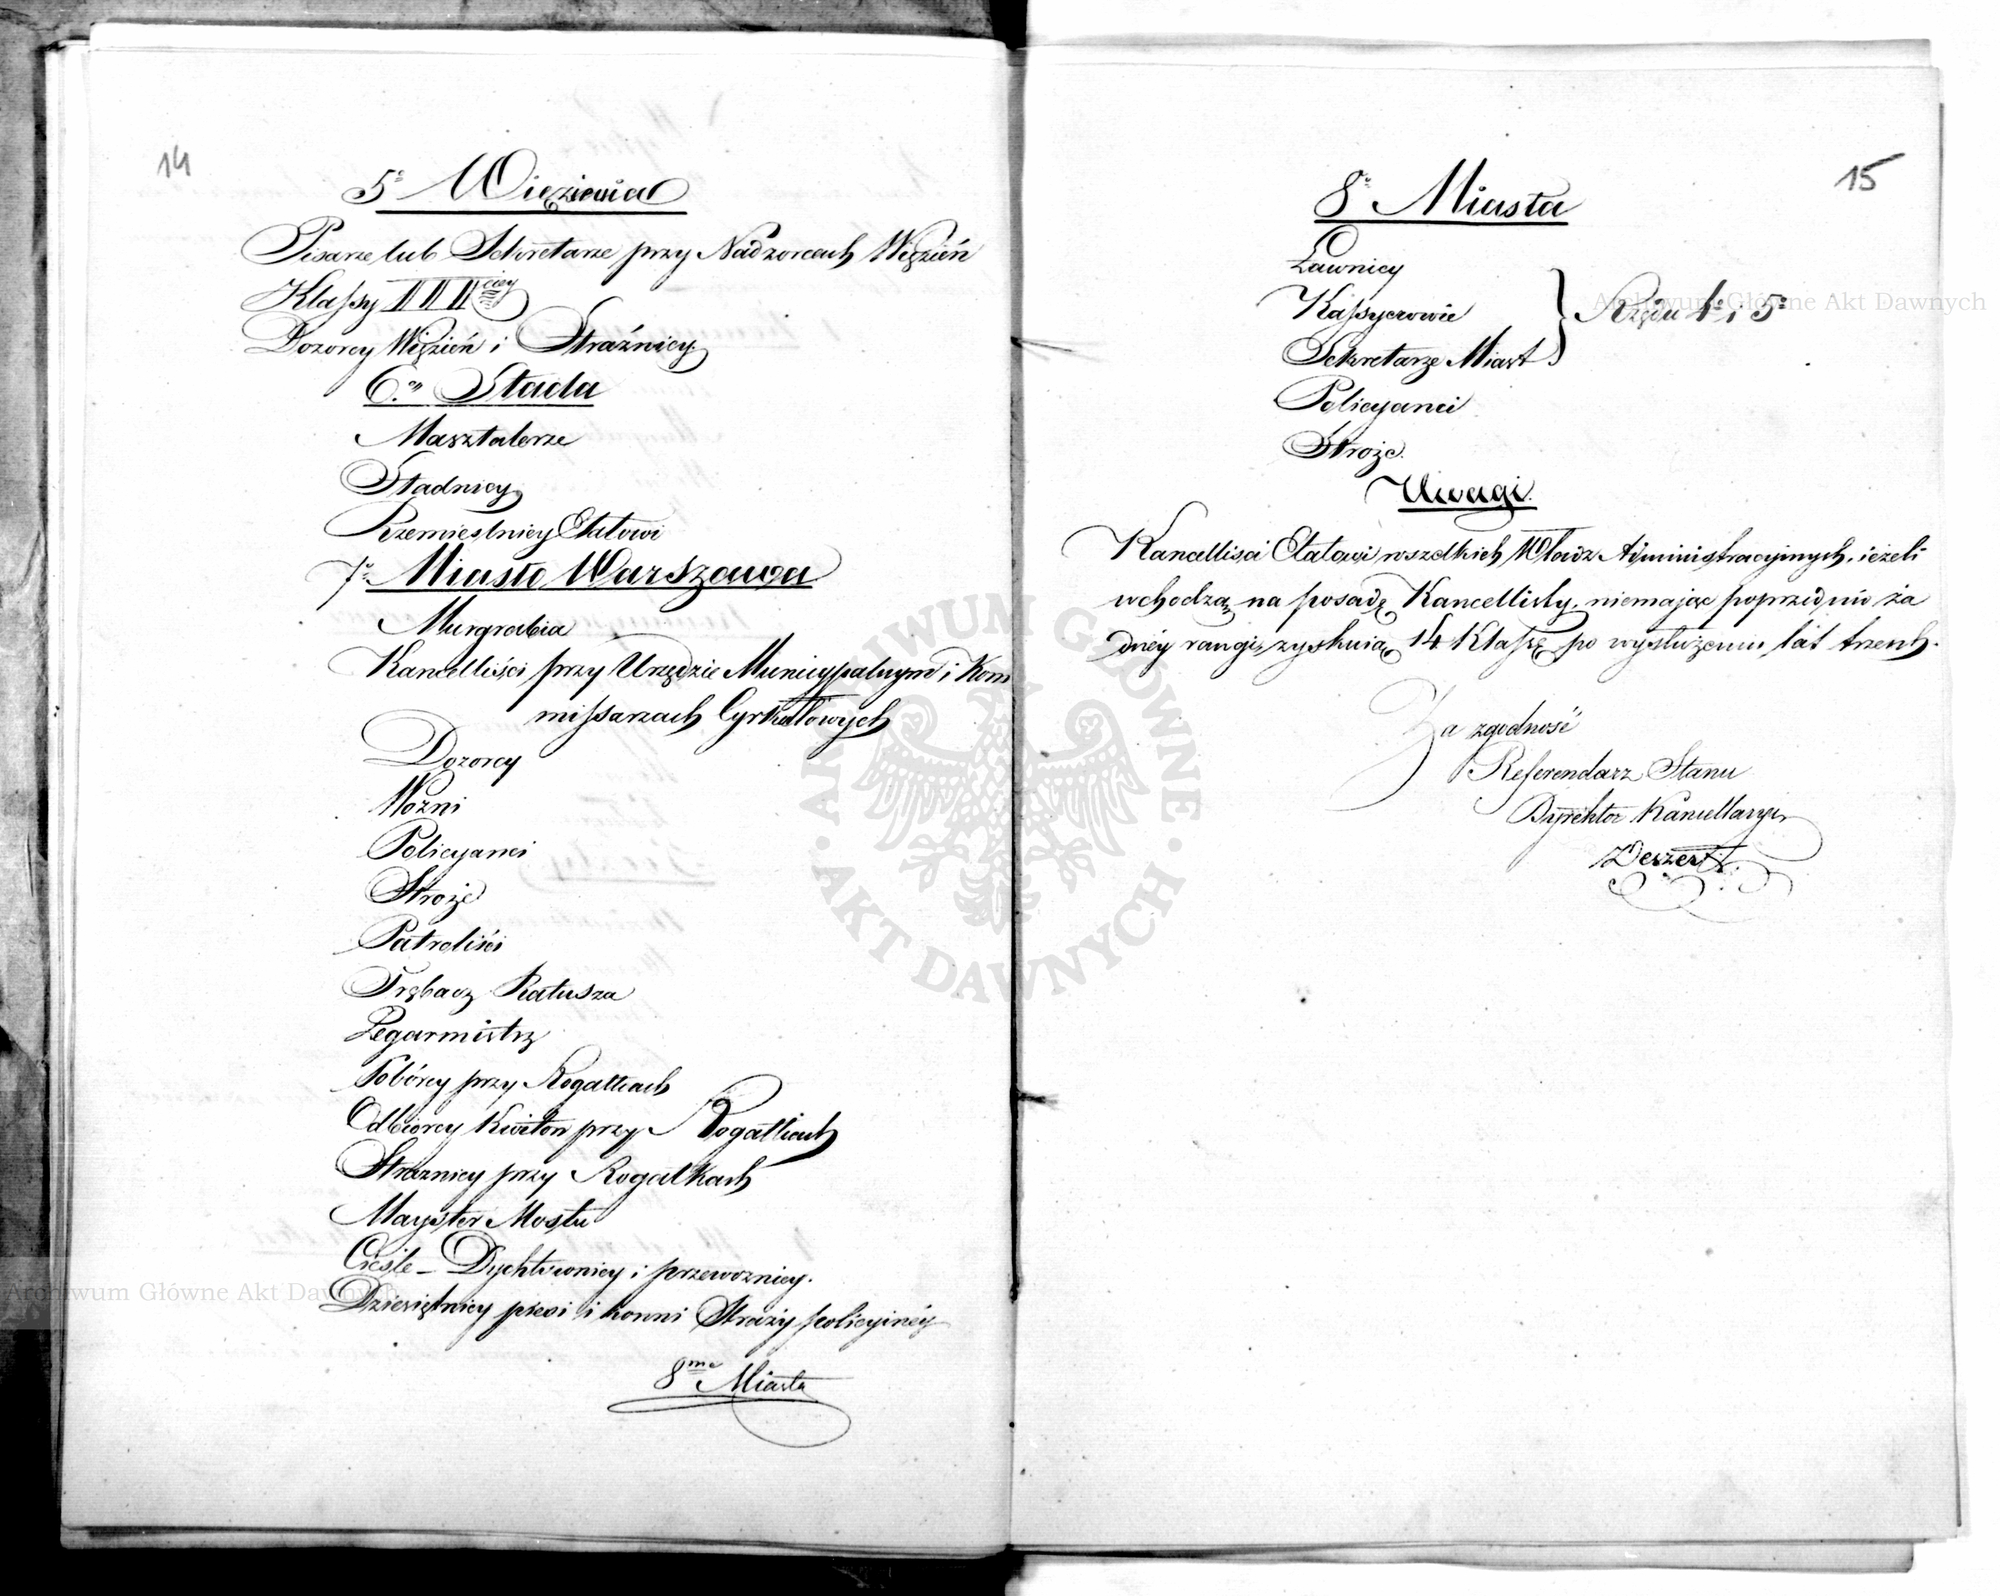 14
5° Więzienia
Pisarze lub Sekretarze przy Nadzorcach Więzień
Klassy III ciey
Dozorcy Więzień i Strażnicy
6.° Stada
Masztalerze
Stadnicy
Rzemieślnicy Etatowi
7° Miasto Warszawa
Murgrabia
Kancelliści przy Urzędzie Municypalnym i Kom
missarzach Cyrkułowych
Dozorcy
Woźni
Policyanci
Stroże
Patroliści
Trębacz Ratusza
Zegarmistrz
Pobórcy przy Rogatkach
Odbiorcy Kwitów przy Rogatkach
Strażnicy przy Rogatkach
Mayster Mostu
Cieśle – Dychtownicy i przewoznicy.
Dziesiętnicy piesi i konni Straży policyinéy
8me Miasta
15
8° Miasta
Ławnicy
Kassyerowie
Sekretarze Miast
Rzędu 4° i 5°
Policyanci
Stroże.
Uwagi.
Kancelliści Etatowi wszelkich Władz Administracyinych, ieżeli
wchodzą na posadę Kancellisty, niemając poprzednio ża
dnéy rangi, zyskuią 14 Klassę po wysłużeniu lat trzech.
Za zgodność
Referendarz Stanu
Dyrektor Kancellaryi
Deszert
Archiwum Główne Akt Dawnych
Archiwum Główne Akt Dawnych
ARCHIWUM GŁÓWNE · AKT DAWNYCH ·